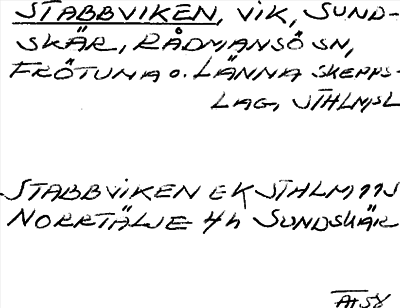 STABBVIKEN, VIK, SUND-
SKÄR, RÅDMANSÖ SN,
FRÖTUNA o. LÄNNA SKEPPS-
LAG, STHLMSL
STABBVIKEN EK STHLM 11S
NORRTÄLJE 4h SUNDSKÄR